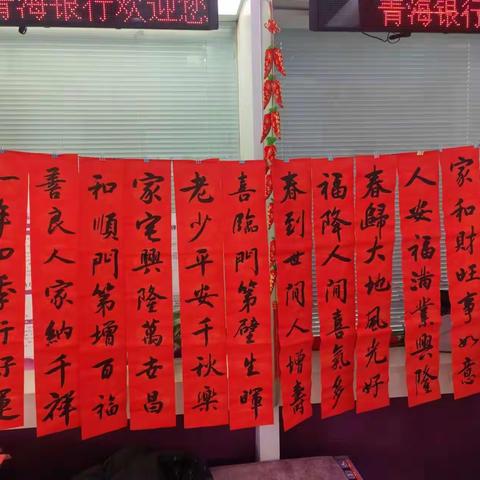 青海银行欢迎您
青海银行
家和財旺事如意
人安福满業興隆
春歸大地風光好
福降人間喜氣多
春到世間人增壽
喜臨門第壁生暉
老少平安千秋樂
家宅興隆萬世昌
和順門第增百福
善良人家納千祥
一年四季行好運